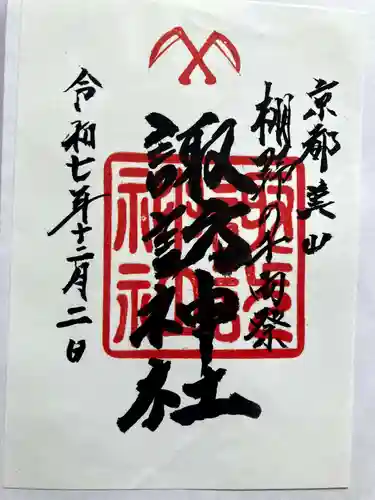 京都美山
棚野の千両祭
諏訪神社
令和七年十二月二日